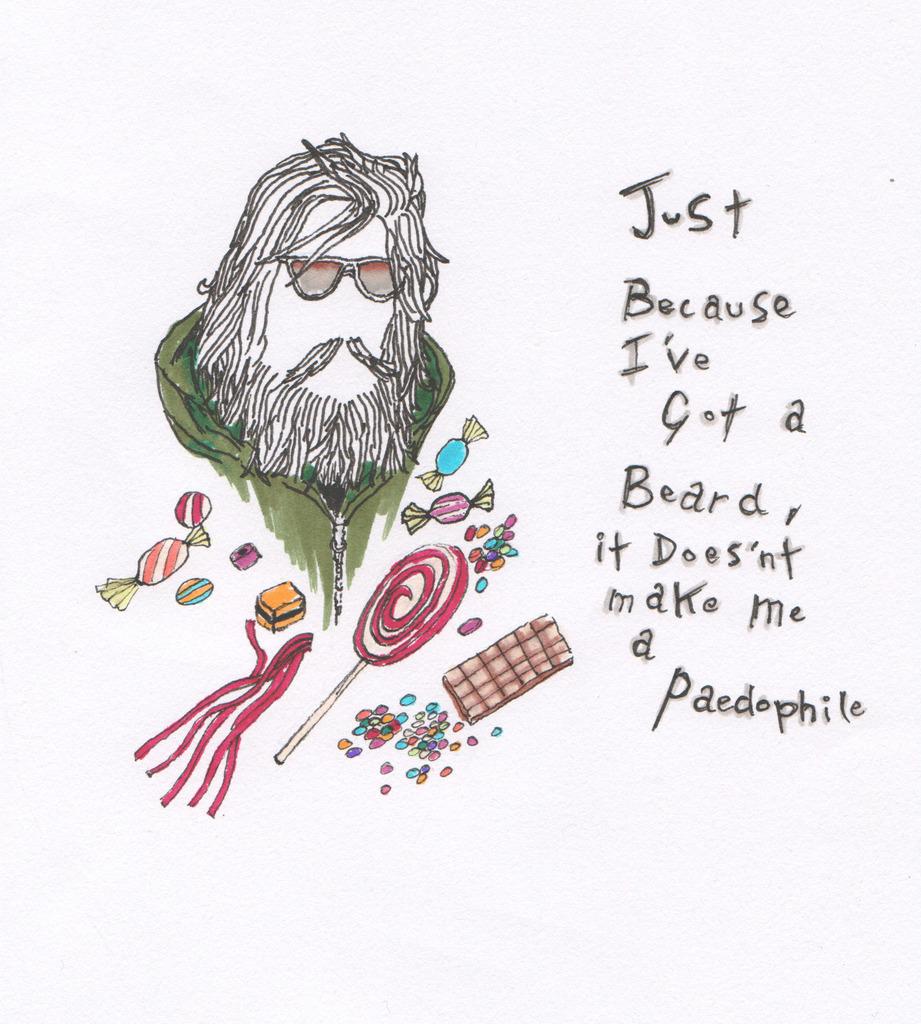 Just
Because
I've
Got a
Beard,
it Does'nt
make me
a
Paedophile